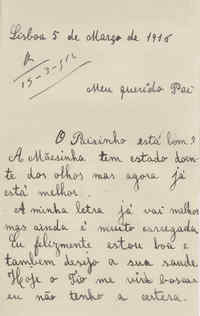 Lisboa 5 de Março de 1916
R
15-3-912
Meu querido Pai
O Paisinho está bom?
A Mãesinha tem estado doen-
te dos olhos mas agora já
está melhor.
A minha letra já vai melhor
mas ainda é muito carregada
Eu felizmente estou boa e
tambem desejo a sua saude.
Hoje o Tio me virá buscar
eu não tenho a certera.